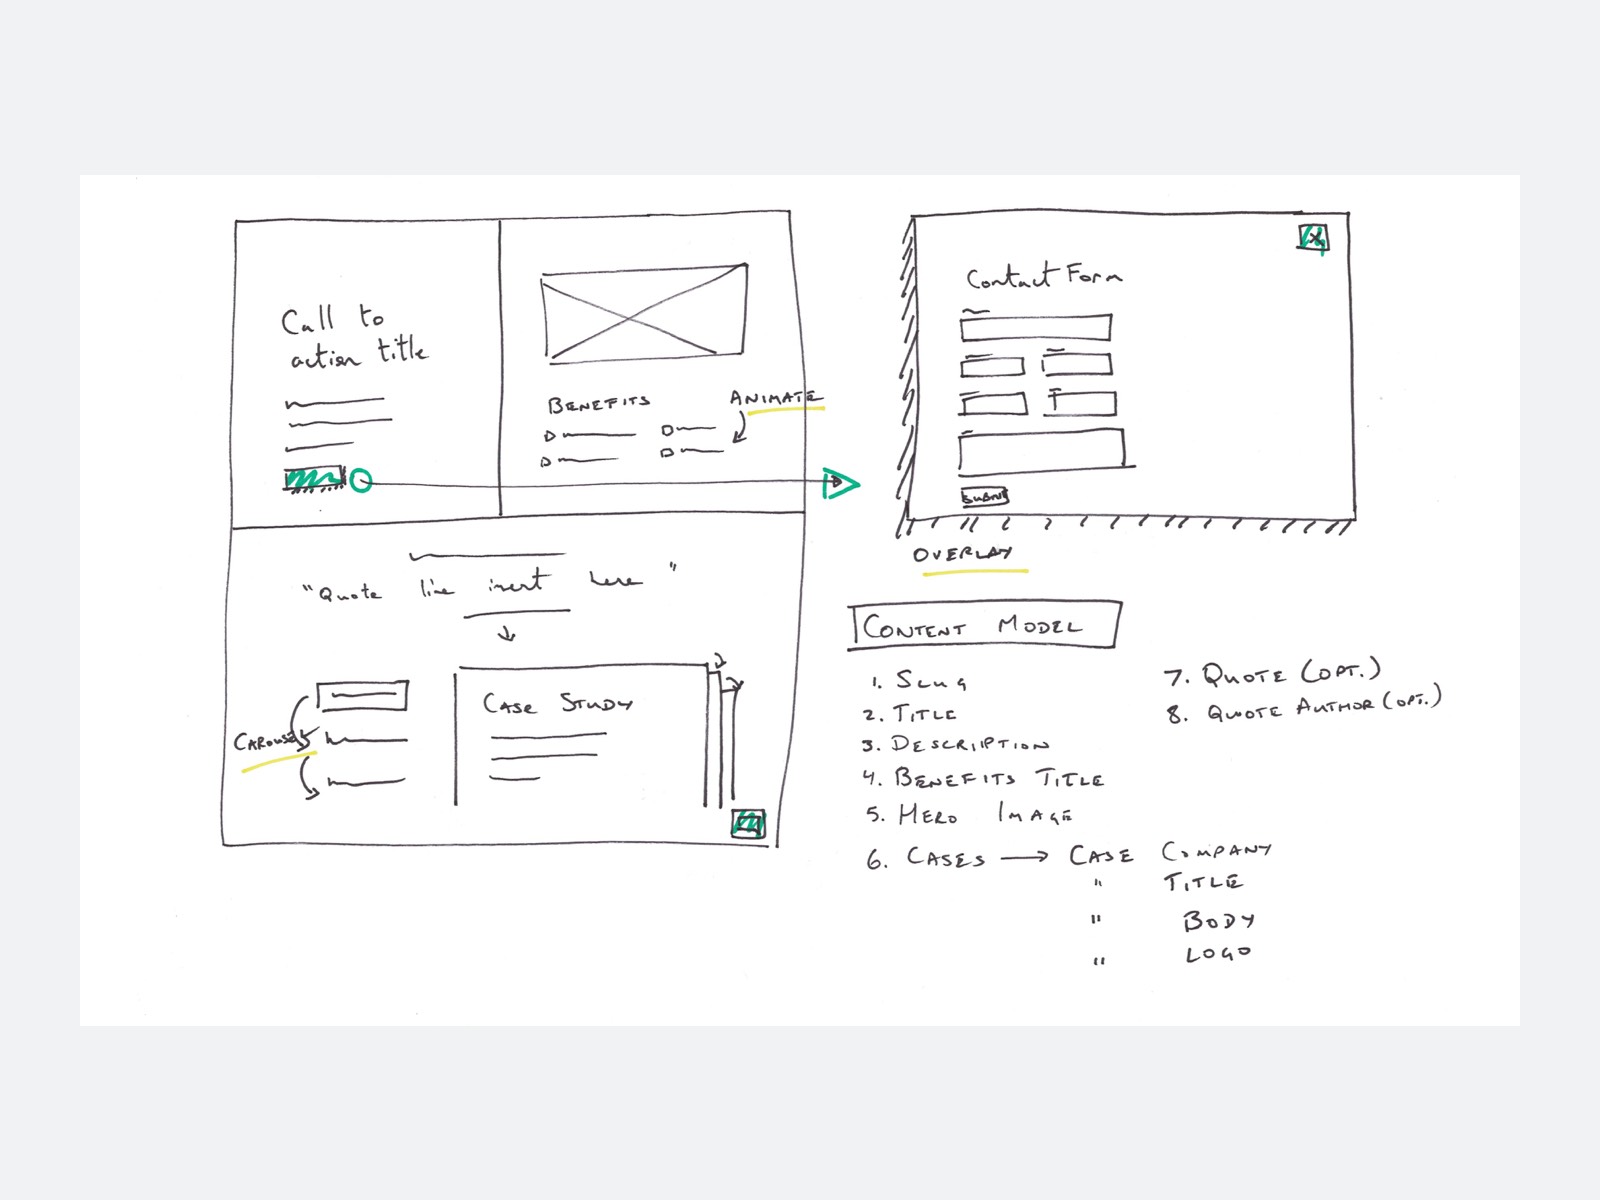 Call to
action title
BENEFITS
ANIMATE
"Quote line insert here"
CAROUSEL
CASE STUDY
X
Contact Form
SUBMIT
OVERLAY
CONTENT MODEL
1. SLUG
2. TITLE
3. DESCRIIPTION
4. BENEFITS TITLE
5. HERO IMAGE
6. CASES → CASE COMPANY
" TITLE
" BODY
" LOGO
7. QUOTE (OPT.)
8. QUOTE AUTHOR (OPT.)